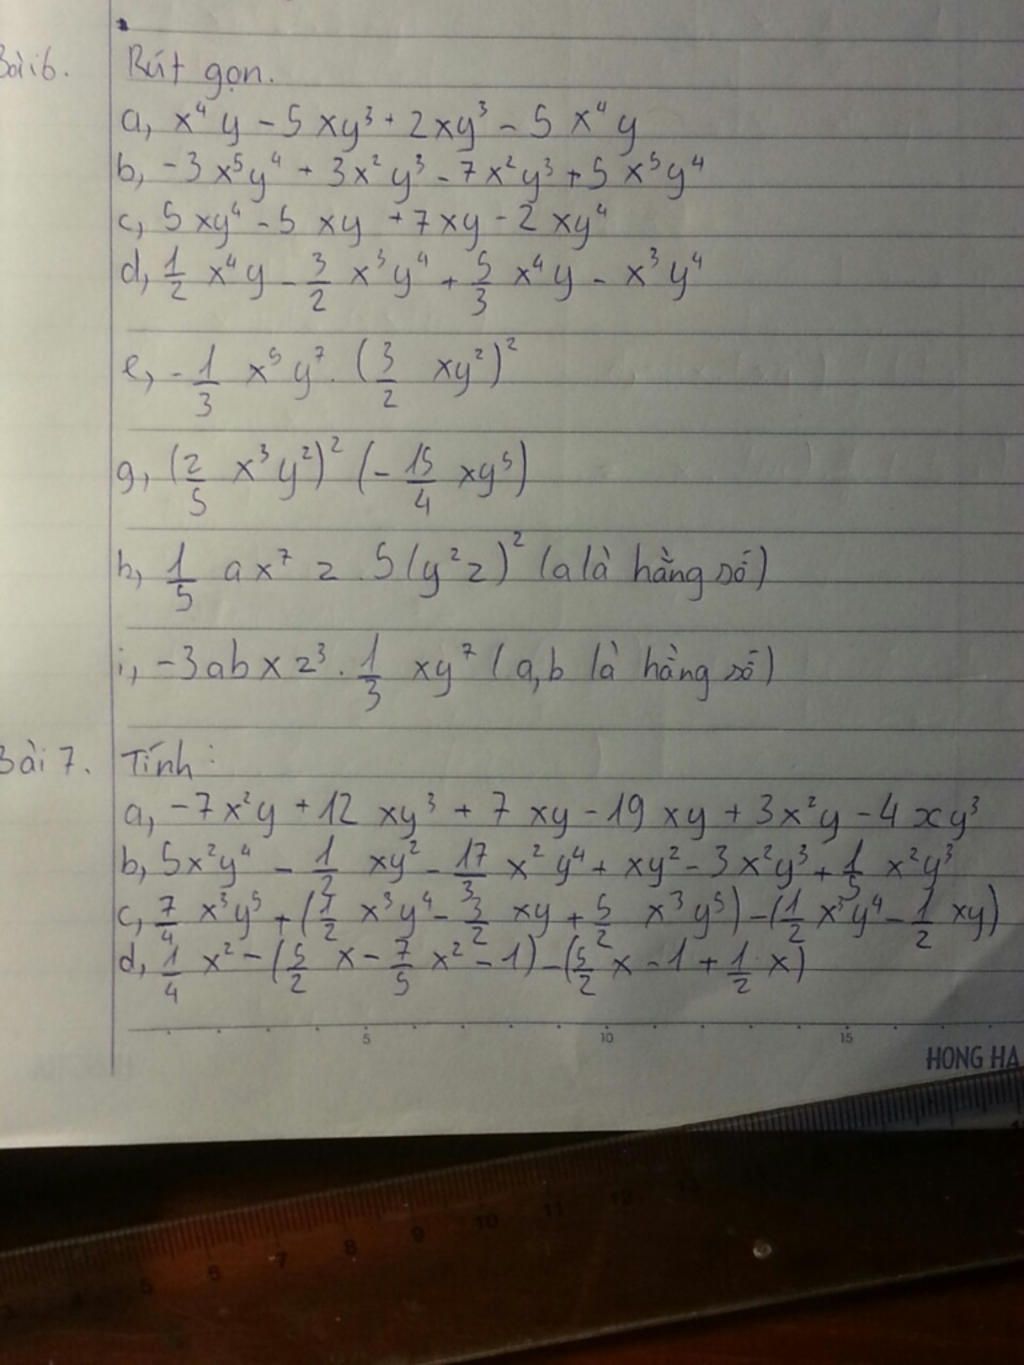 Bài 6. Rút gọn.
a, x⁴y - 5xy³ + 2xy³ - 5x⁴y
b, -3x⁵y⁴ + 3x²y³ - 7x²y³ + 5x⁵y⁴
c, 5xy⁴ - 5xy + 7xy - 2xy⁴
d, 1/2 x⁴y - 3/2 x³y⁴ + 5/3 x⁴y - x³y⁴
e, -1/3 x⁵y⁷ . (3/2 xy²)²
g, (2/5 x³y²)² (-15/4 xy⁵)
h, 1/5 ax⁷z . 5(y²z)² (a là hằng số)
i, -3abxz³ . 1/3 xy⁷ (a,b là hằng số)
Bài 7. Tính:
a, -7x²y + 12xy³ + 7xy - 19xy + 3x²y - 4xy³
b, 5x²y⁴ - 1/2 xy² - 17/3 x²y⁴ + xy² - 3x²y³ + 1/5 x²y³
c, 7/4 x³y⁵ + (1/2 x³y⁴ - 3/2 xy + 5/2 x³y⁵) - (1/2 x³y⁴ - 1/2 xy)
d, 1/4 x² - (5/2 x - 7/5 x² - 1) - (5/2 x - 1 + 1/2 x)
5 10 15
HONG HA
5 6 7 8 9 10 11 12 13